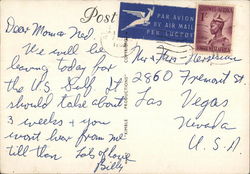 Dear Mom & Ned.
We will be
leaving today for
the U.S. Gulf. It
should take about
3 weeks & you
wont hear from me
till then
Lots of love
Billy
Post
PAR AVION
BY AIR MAIL
PER LUGPOS
Mr & Mrs
2860 Fremont St.
Las Vegas
Nevada
U.S.A.